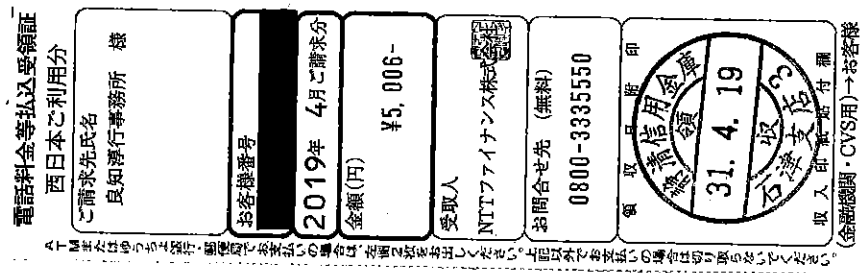 電話料金等払込受領証
西日本ご利用分
ご請求先氏名
良知淳行事務所 様
お客様番号
2019年 4月ご請求分
金額(円)
¥5,006-
受取人
NTTファイナンス株式会社
お問合せ先 (無料)
0800-3335550
領収日附印
信用金庫
領
31. 4. 19
収
石津支店
収入印紙貼付欄
(金融機関・CVS用)→お客様
ATMまたはゆうちょ銀行・郵便局でお支払いの場合は、左面2枚をお出しください。上記以外でお支払いの場合は切り取らないでください。